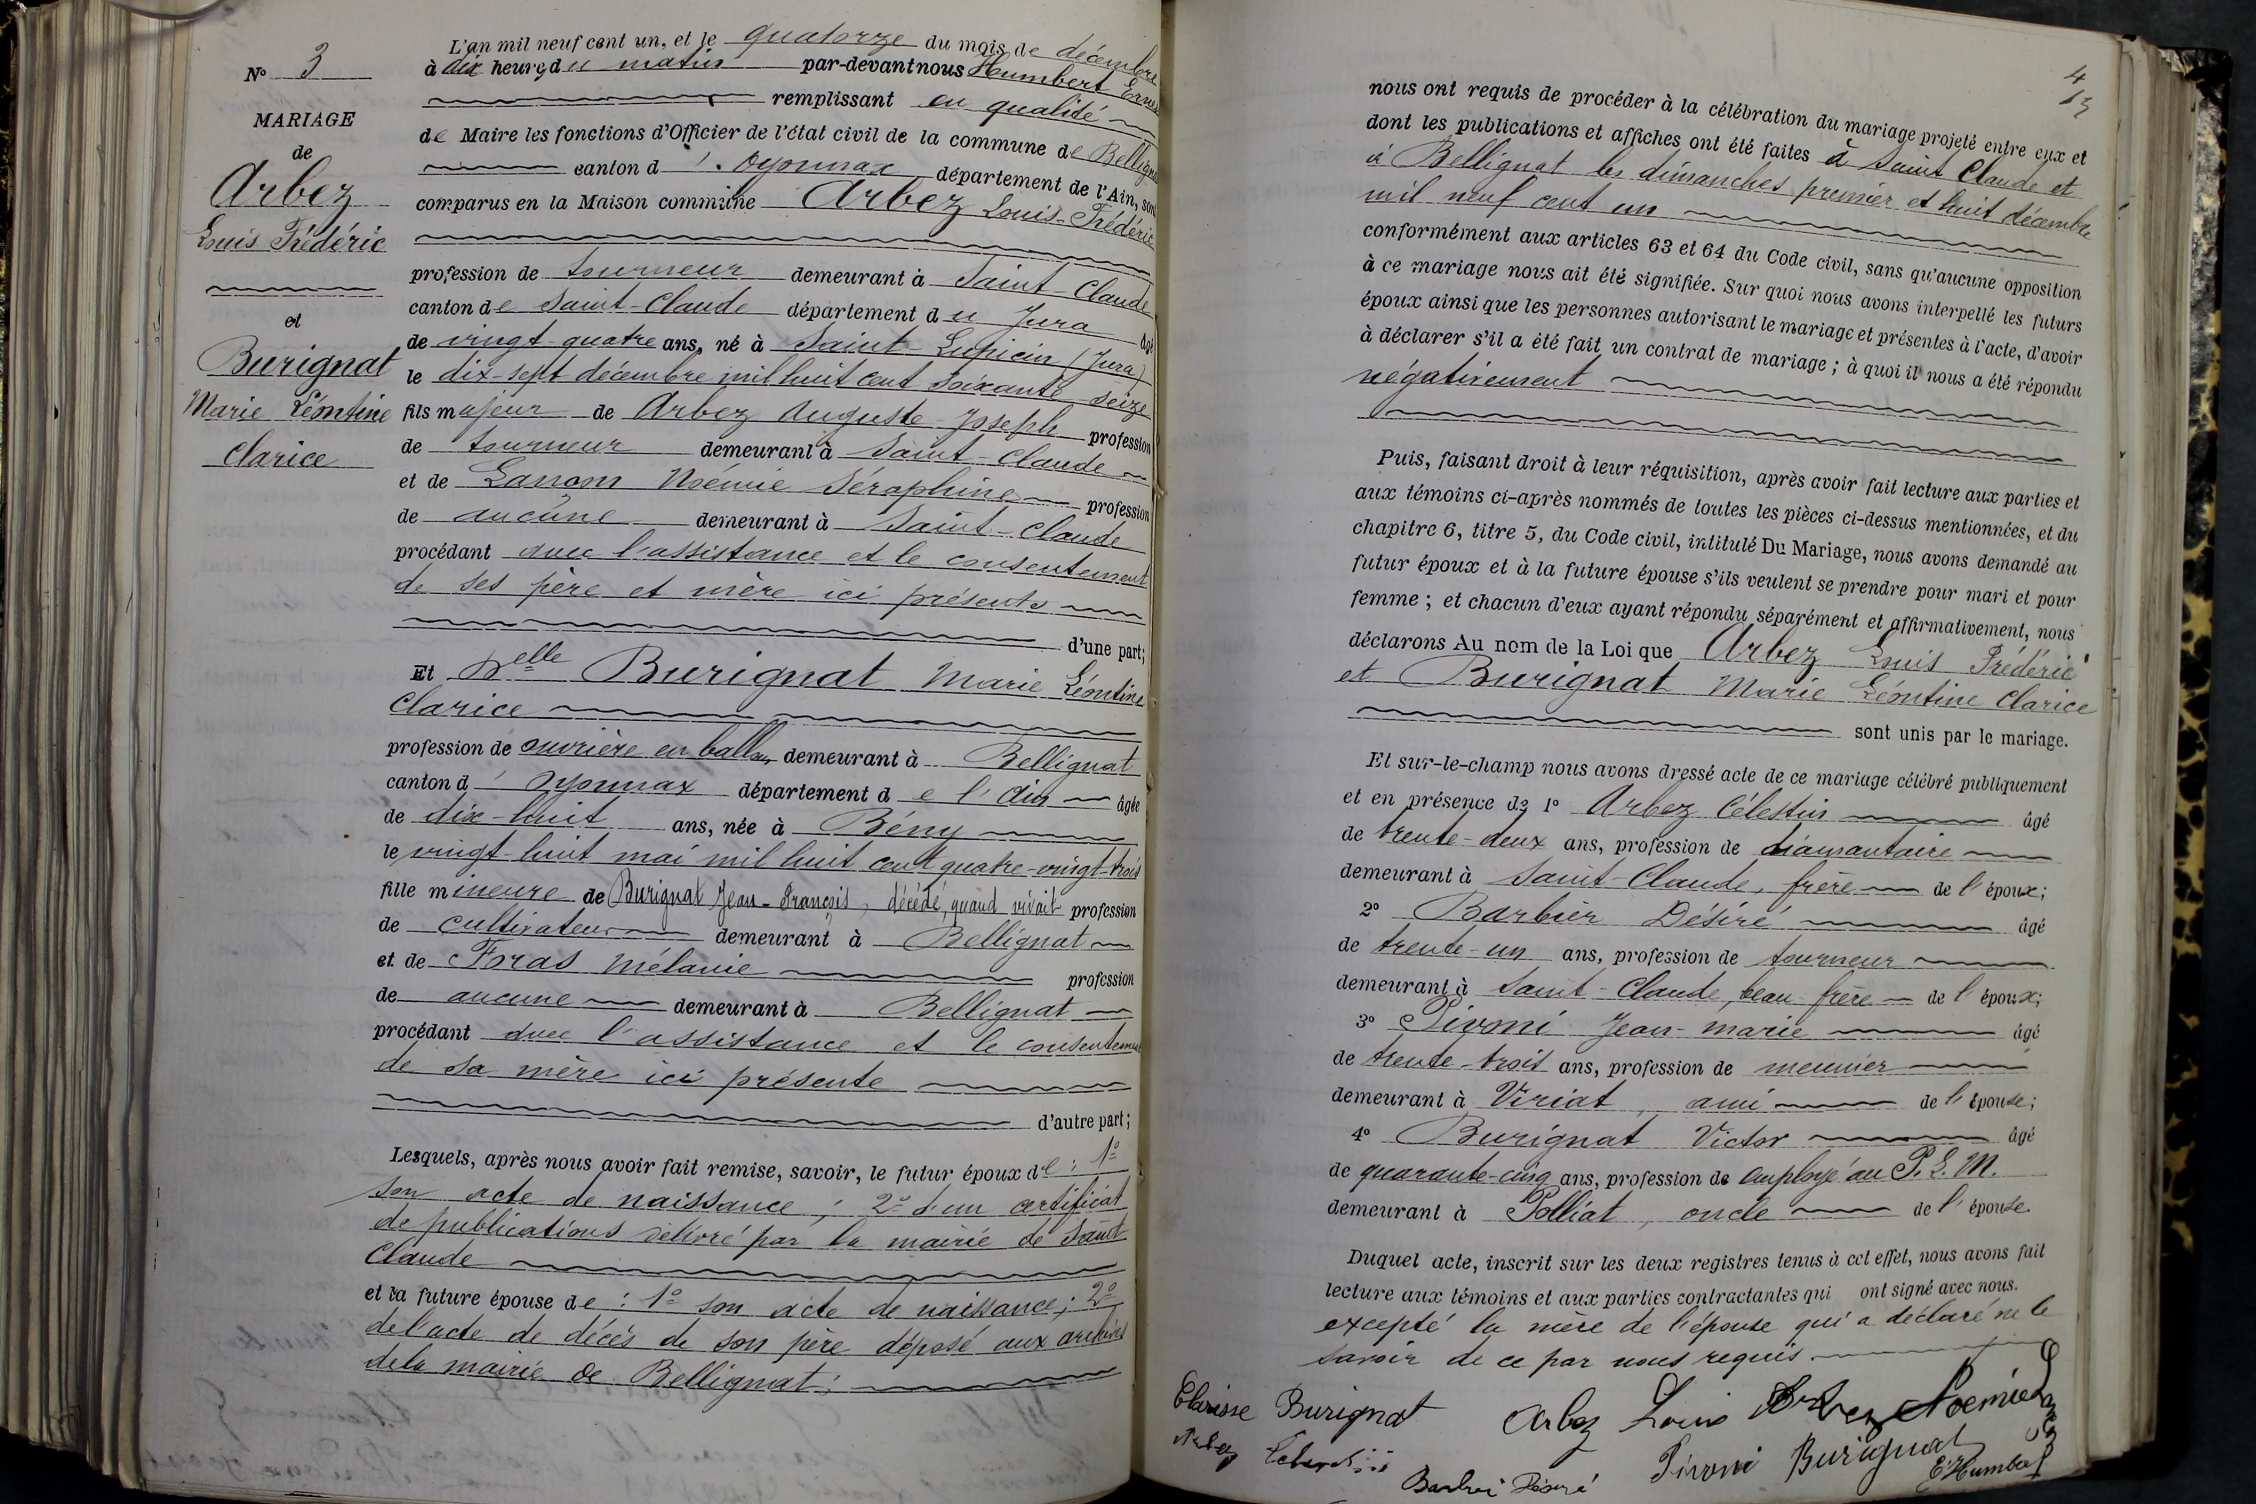 N° 3
MARIAGE
de
Arbez
Louis Frédéric
et
Burignat
Marie Léontine
Clarice
L'an mil neuf cent un, et le quatorze du mois de décembre
à dix heures du matin par-devant nous Humbert Ernest
remplissant en qualité
de Maire les fonctions d'Officier de l'état civil de la commune de Bellignat
canton d'Oyonnax département de l'Ain, sont
comparus en la Maison commune Arbez Louis Frédéric
profession de tourneur demeurant à Saint-Claude
canton de Saint-Claude département du Jura âgé
de vingt-quatre ans, né à Saint Lupicin (Jura)
le dix-sept décembre mil huit cent soixante seize
fils majeur de Arbez Auguste Joseph profession
de tourneur demeurant à Saint-Claude
et de Lançon Noémie Séraphine profession
de aucune demeurant à Saint-Claude
procédant avec l'assistance et le consentement
de ses père et mère ici présents
d'une part;
Et Delle Burignat Marie Léontine
Clarice
profession de ouvrière en ballon demeurant à Bellignat
canton d'Oyonnax département de l'Ain âgée
de dix-huit ans, née à Bény
le vingt-huit mai mil huit cent quatre-vingt-trois
fille mineure de Burignat Jean-François, décédé, quand vivait profession
de cultivateur demeurant à Bellignat
et de Foras Mélanie profession
de aucune demeurant à Bellignat
procédant avec l'assistance et le consentement
de sa mère ici présente
d'autre part;
Lesquels, après nous avoir fait remise, savoir, le futur époux de : 1°
son acte de naissance ; 2° d'un certificat
de publications délivré par la mairie de Saint
Claude
et la future épouse de : 1° son acte de naissance ; 2°
de l'acte de décès de son père déposé aux archives
de la mairie de Bellignat ;
4
13
nous ont requis de procéder à la célébration du mariage projeté entre eux et
dont les publications et affiches ont été faites à Saint Claude et
à Bellignat les dimanches premier et huit décembre
mil neuf cent un
conformément aux articles 63 et 64 du Code civil, sans qu'aucune opposition
à ce mariage nous ait été signifiée. Sur quoi nous avons interpellé les futurs
époux ainsi que les personnes autorisant le mariage et présentes à l'acte, d'avoir
à déclarer s'il a été fait un contrat de mariage ; à quoi il nous a été répondu
négativement
Puis, faisant droit à leur réquisition, après avoir fait lecture aux parties et
aux témoins ci-après nommés de toutes les pièces ci-dessus mentionnées, et du
chapitre 6, titre 5, du Code civil, intitulé Du Mariage, nous avons demandé au
futur époux et à la future épouse s'ils veulent se prendre pour mari et pour
femme ; et chacun d'eux ayant répondu séparément et affirmativement, nous
déclarons Au nom de la Loi que Arbez Louis Frédéric
et Burignat Marie Léontine Clarice
sont unis par le mariage.
Et sur-le-champ nous avons dressé acte de ce mariage célébré publiquement
et en présence de 1° Arbez Célestin âgé
de trente-deux ans, profession de diamantaire
demeurant à Saint-Claude, frère de l'époux;
2° Barbier Désiré âgé
de trente-un ans, profession de tourneur
demeurant à Saint-Claude, beau-frère de l'époux;
3° Pivoni Jean-Marie âgé
de trente-trois ans, profession de meunier
demeurant à Viriat, ami de l'épouse;
4° Burignat Victor âgé
de quarante-cinq ans, profession de employé au P. L. M.
demeurant à Polliat, oncle de l'épouse.
Duquel acte, inscrit sur les deux registres tenus à cet effet, nous avons fait
lecture aux témoins et aux parties contractantes qui ont signé avec nous.
excepté la mère de l'épouse qui a déclaré ne le
savoir de ce par nous requis.
Clarisse Burignat Arbez Louis Arbez Noemie
Arbez Pivoni Burignat
E. Humbert